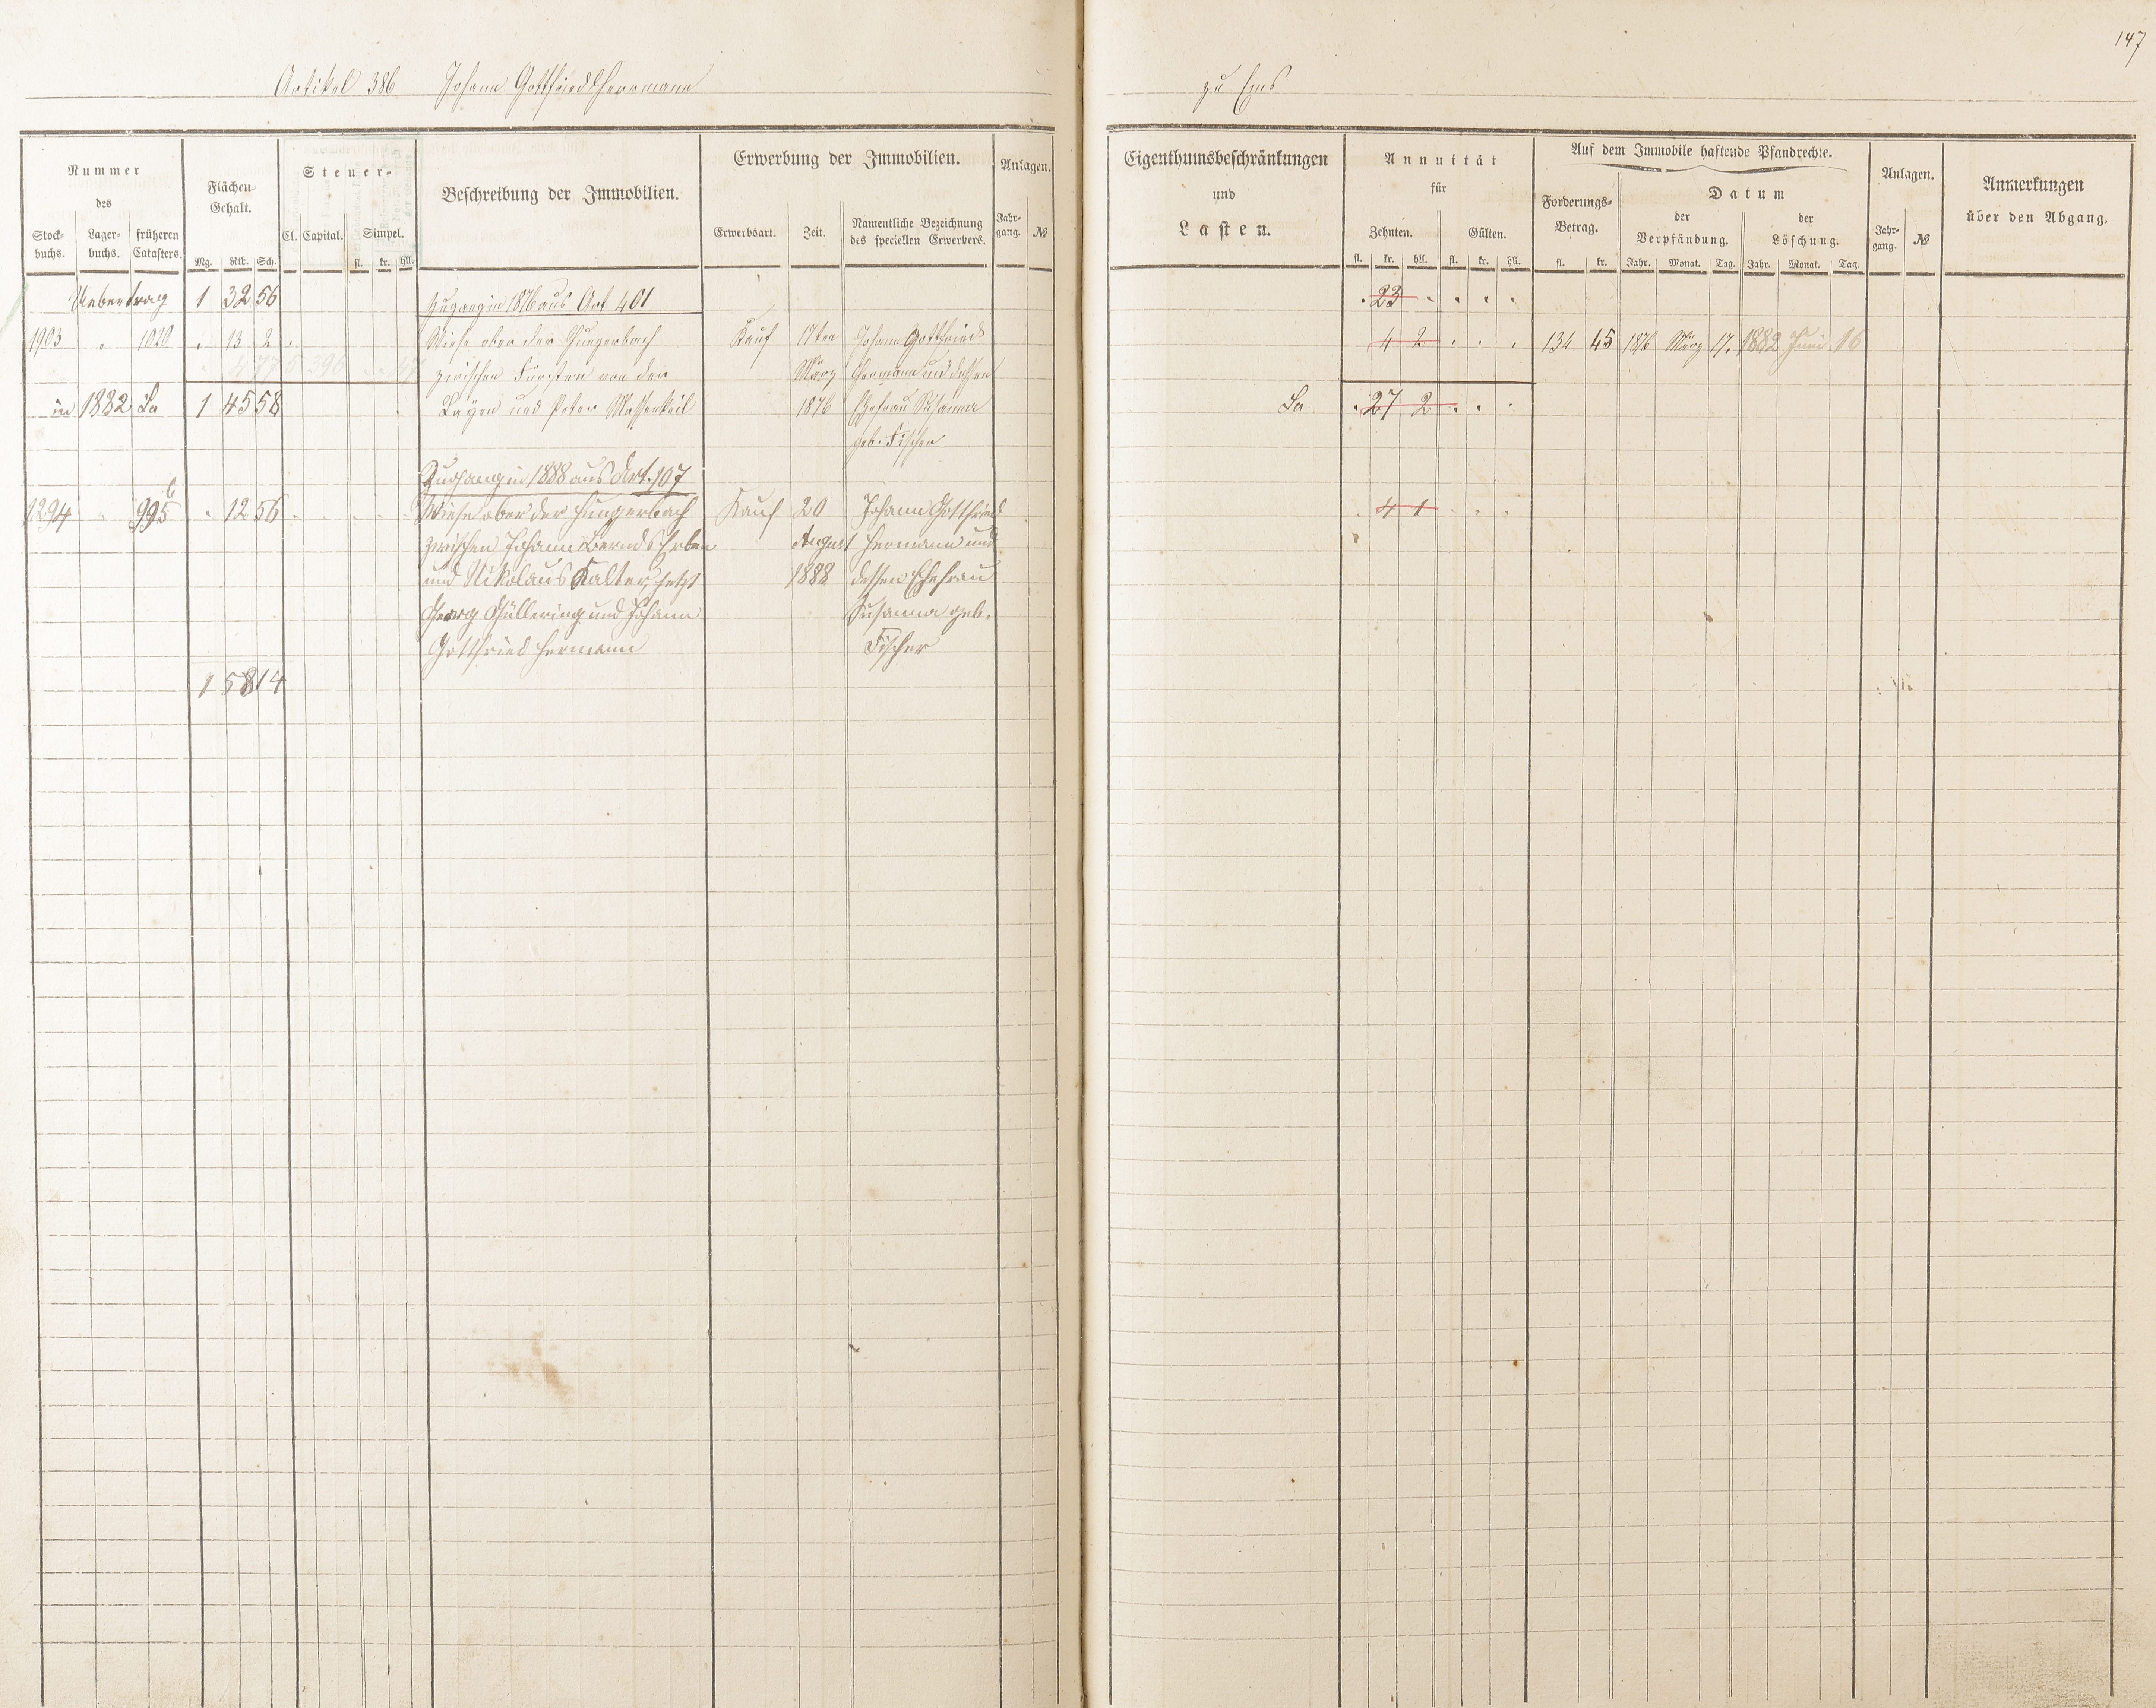 147
Artikel 386 Johann Gottfried Herrmann zu Ems
Nummer
des
Stock-
buchs.
Lager-
buchs.
früheren
Catasters.
Flächen-
Gehalt.
Mg. Rth. Sch.
Steuer-
Cl. Capital. Simpel.
fl. kr. hll.
Beschreibung der Immobilien.
Erwerbung der Immobilien.
Erwerbsart. Zeit.
Namentliche Bezeichnung
des speciellen Erwerbers.
Anlagen.
Jahr-
gang. №
Eigenthumsbeschränkungen
und
Lasten.
Annuität
für
Zehnten. Gülten.
fl. kr. hll. fl. kr. hll.
Auf dem Immobile haftende Pfandrechte.
Forderungs-
Betrag.
fl. kr.
Datum
der
Verpfändung.
Jahr. Monat. Tag.
der
Löschung.
Jahr. Monat. Tag.
Anlagen.
Jahr-
gang. №
Anmerkungen
über den Abgang.
Uebertrag 1 32 56 Zugang in 1876 aus Art 401 . 23 . . . .
1903 . 1020 . 13 2 . Wiese ober der Hungerbach Kauf 17ten Johann Gottfried 4 2 . . . 134 45 1876 März 17. 1882 Juni 16
zwischen Fürsten von der März Hermann und dessen
in 1882 La 1 45 58 Layen und Peter Massenkeil 1876 Ehefrau Susanna La . 27 2 . . .
geb. Fischer
Zugang in 1888 aus Art. 107
1294 . 995 b . 12 56 . Wiese ober der Hungerbach Kauf 20 Johann Gottfried . 4 1 . . .
zwischen Johann Bernds Erben August Hermann und
und Nikolaus Kalter, jetzt 1888 dessen Ehefrau
Georg Güllering und Johann Susanna geb.
Gottfried Hermann Fischer
1 58 14